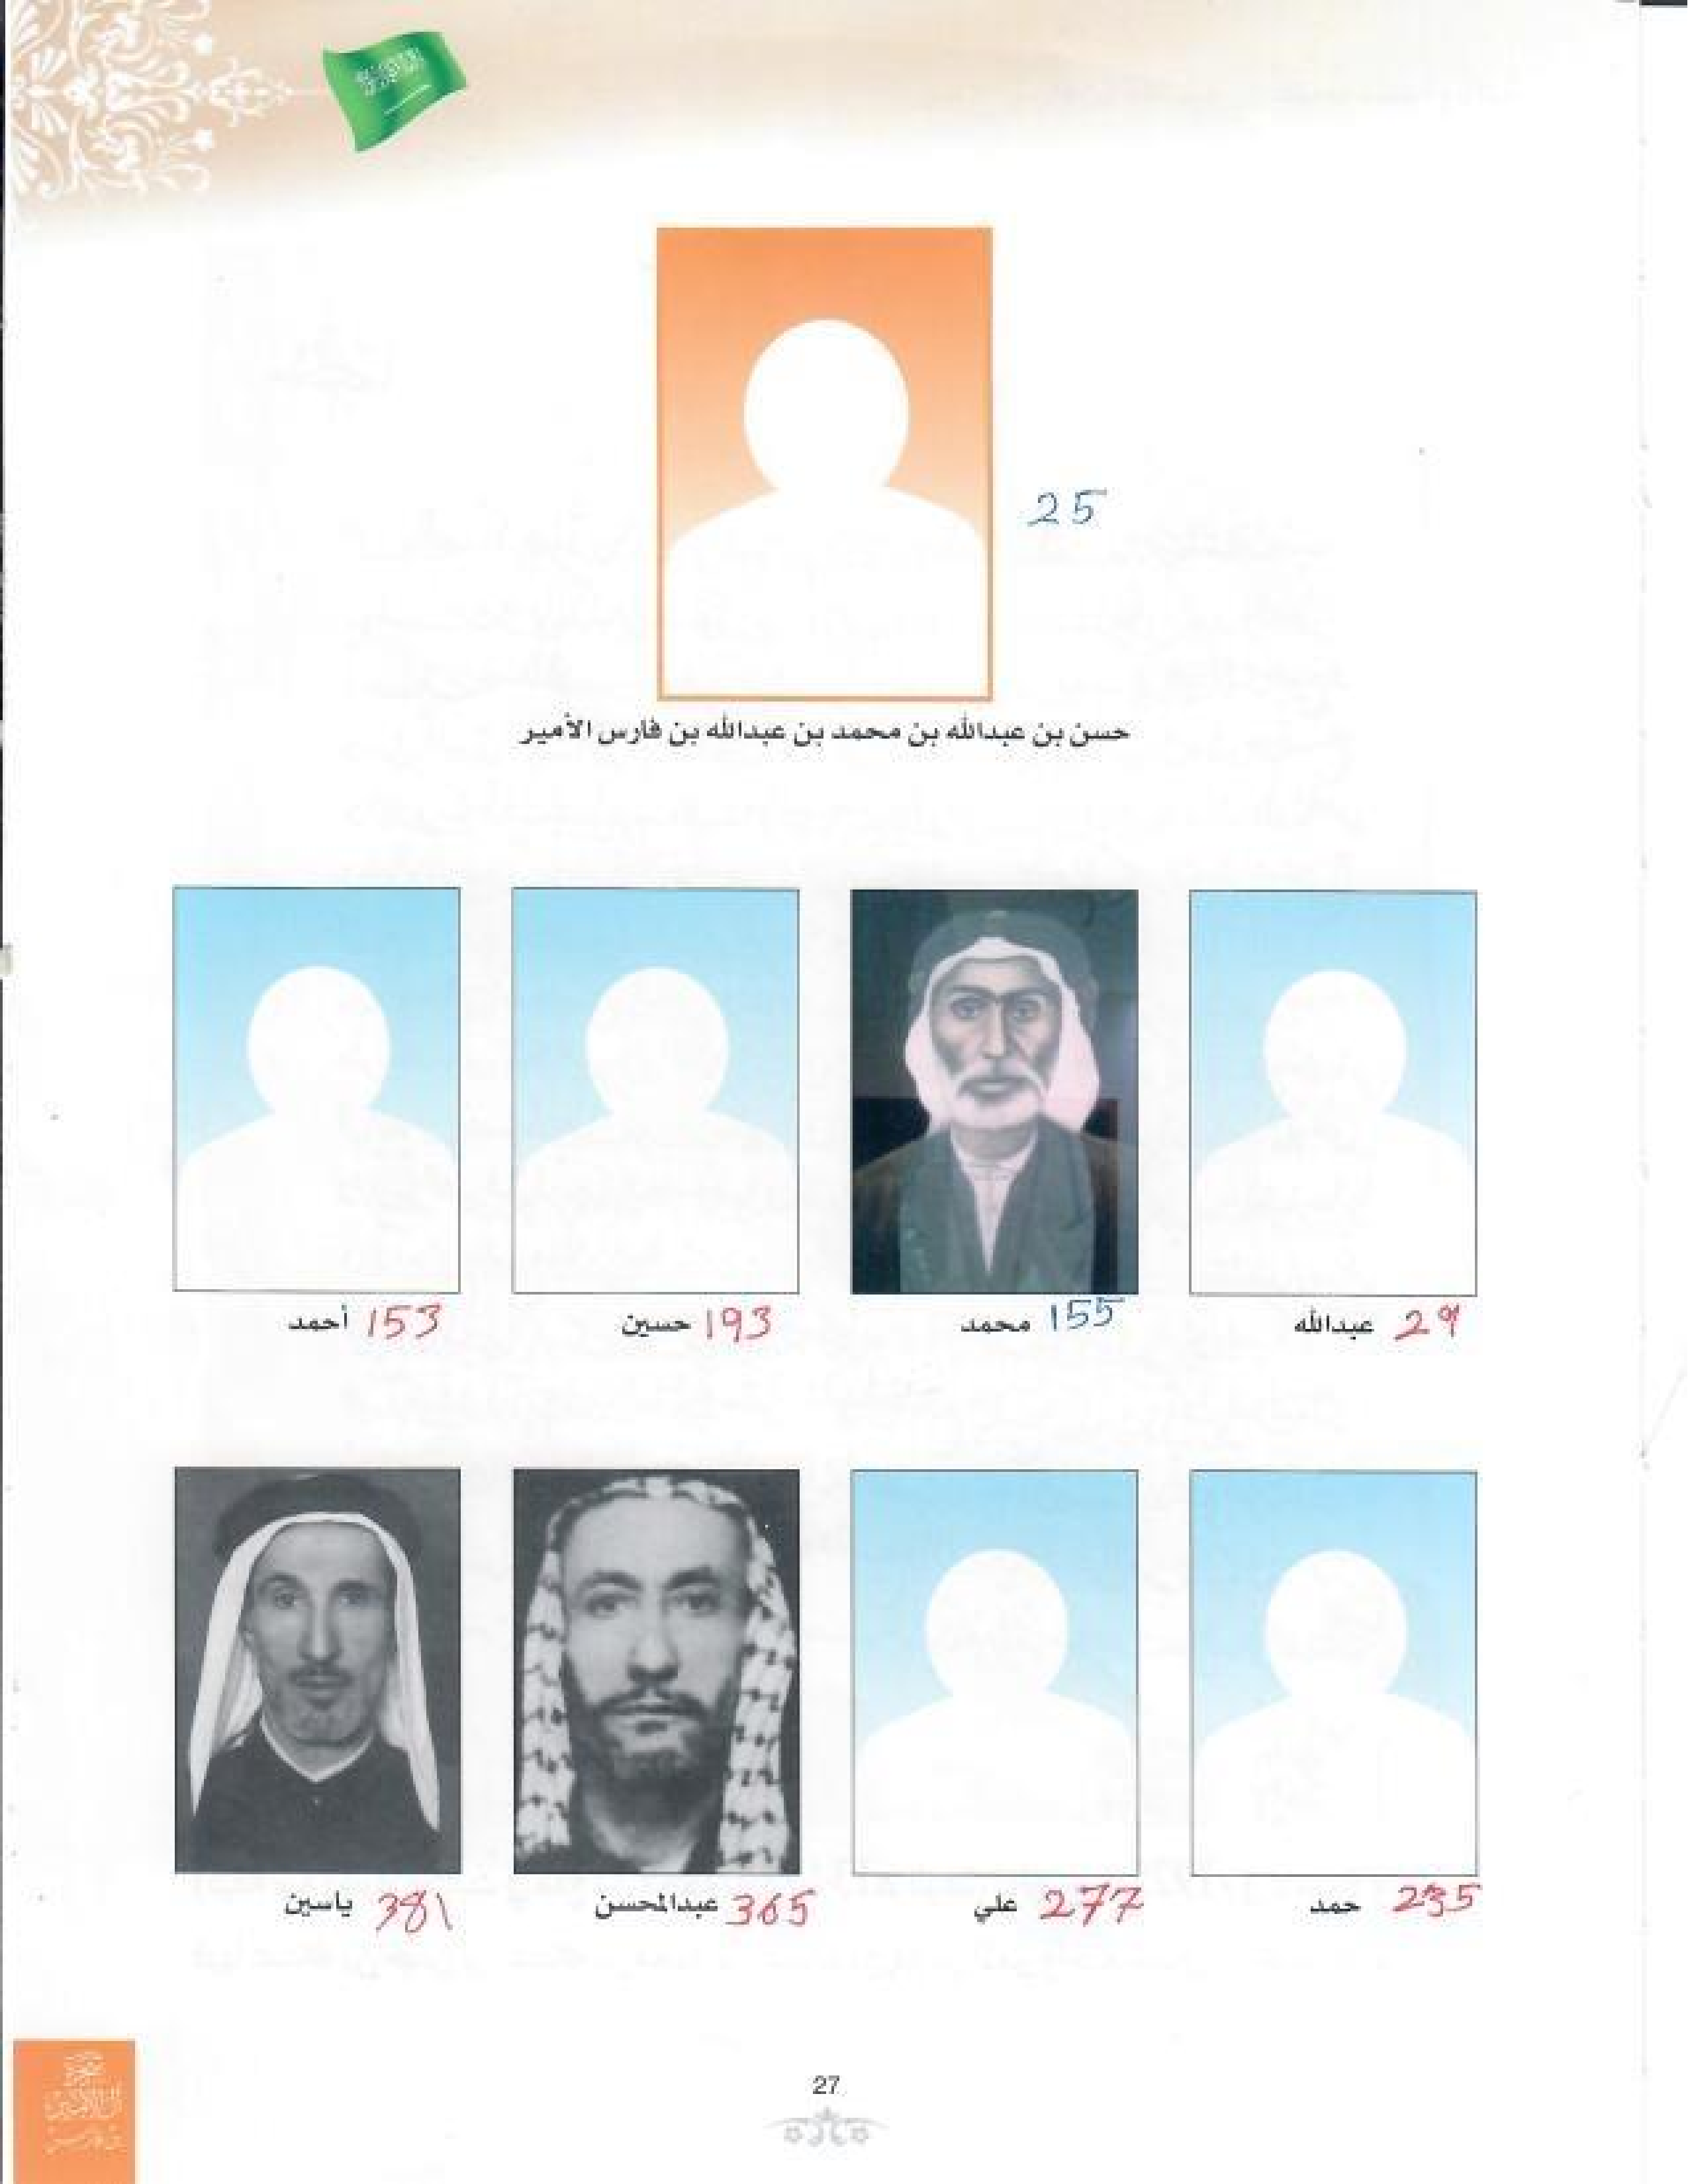 25
حسن بن عبدالله بن محمد بن عبدالله بن فارس الأمير
عبدالله 29
محمد 155
حسين 193
أحمد 153
حمد 235
علي 277
عبدالمحسن 365
ياسين 381
27